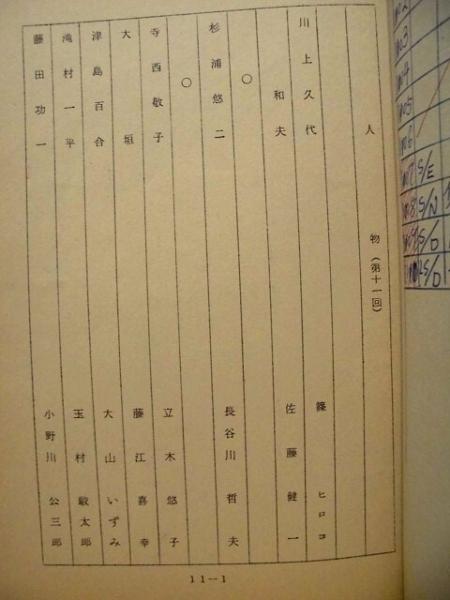 人物（第十一回）
川上久代　篠ヒロコ
和夫　佐藤健一
○
杉浦悠二　長谷川哲夫
○
寺西敬子　立木悠子
大垣　藤江喜幸
津島百合　大山いずみ
滝村一平　玉村敏太郎
藤田功一　小野川公三郎
11－1
S/E
S/N
S/D
S/D